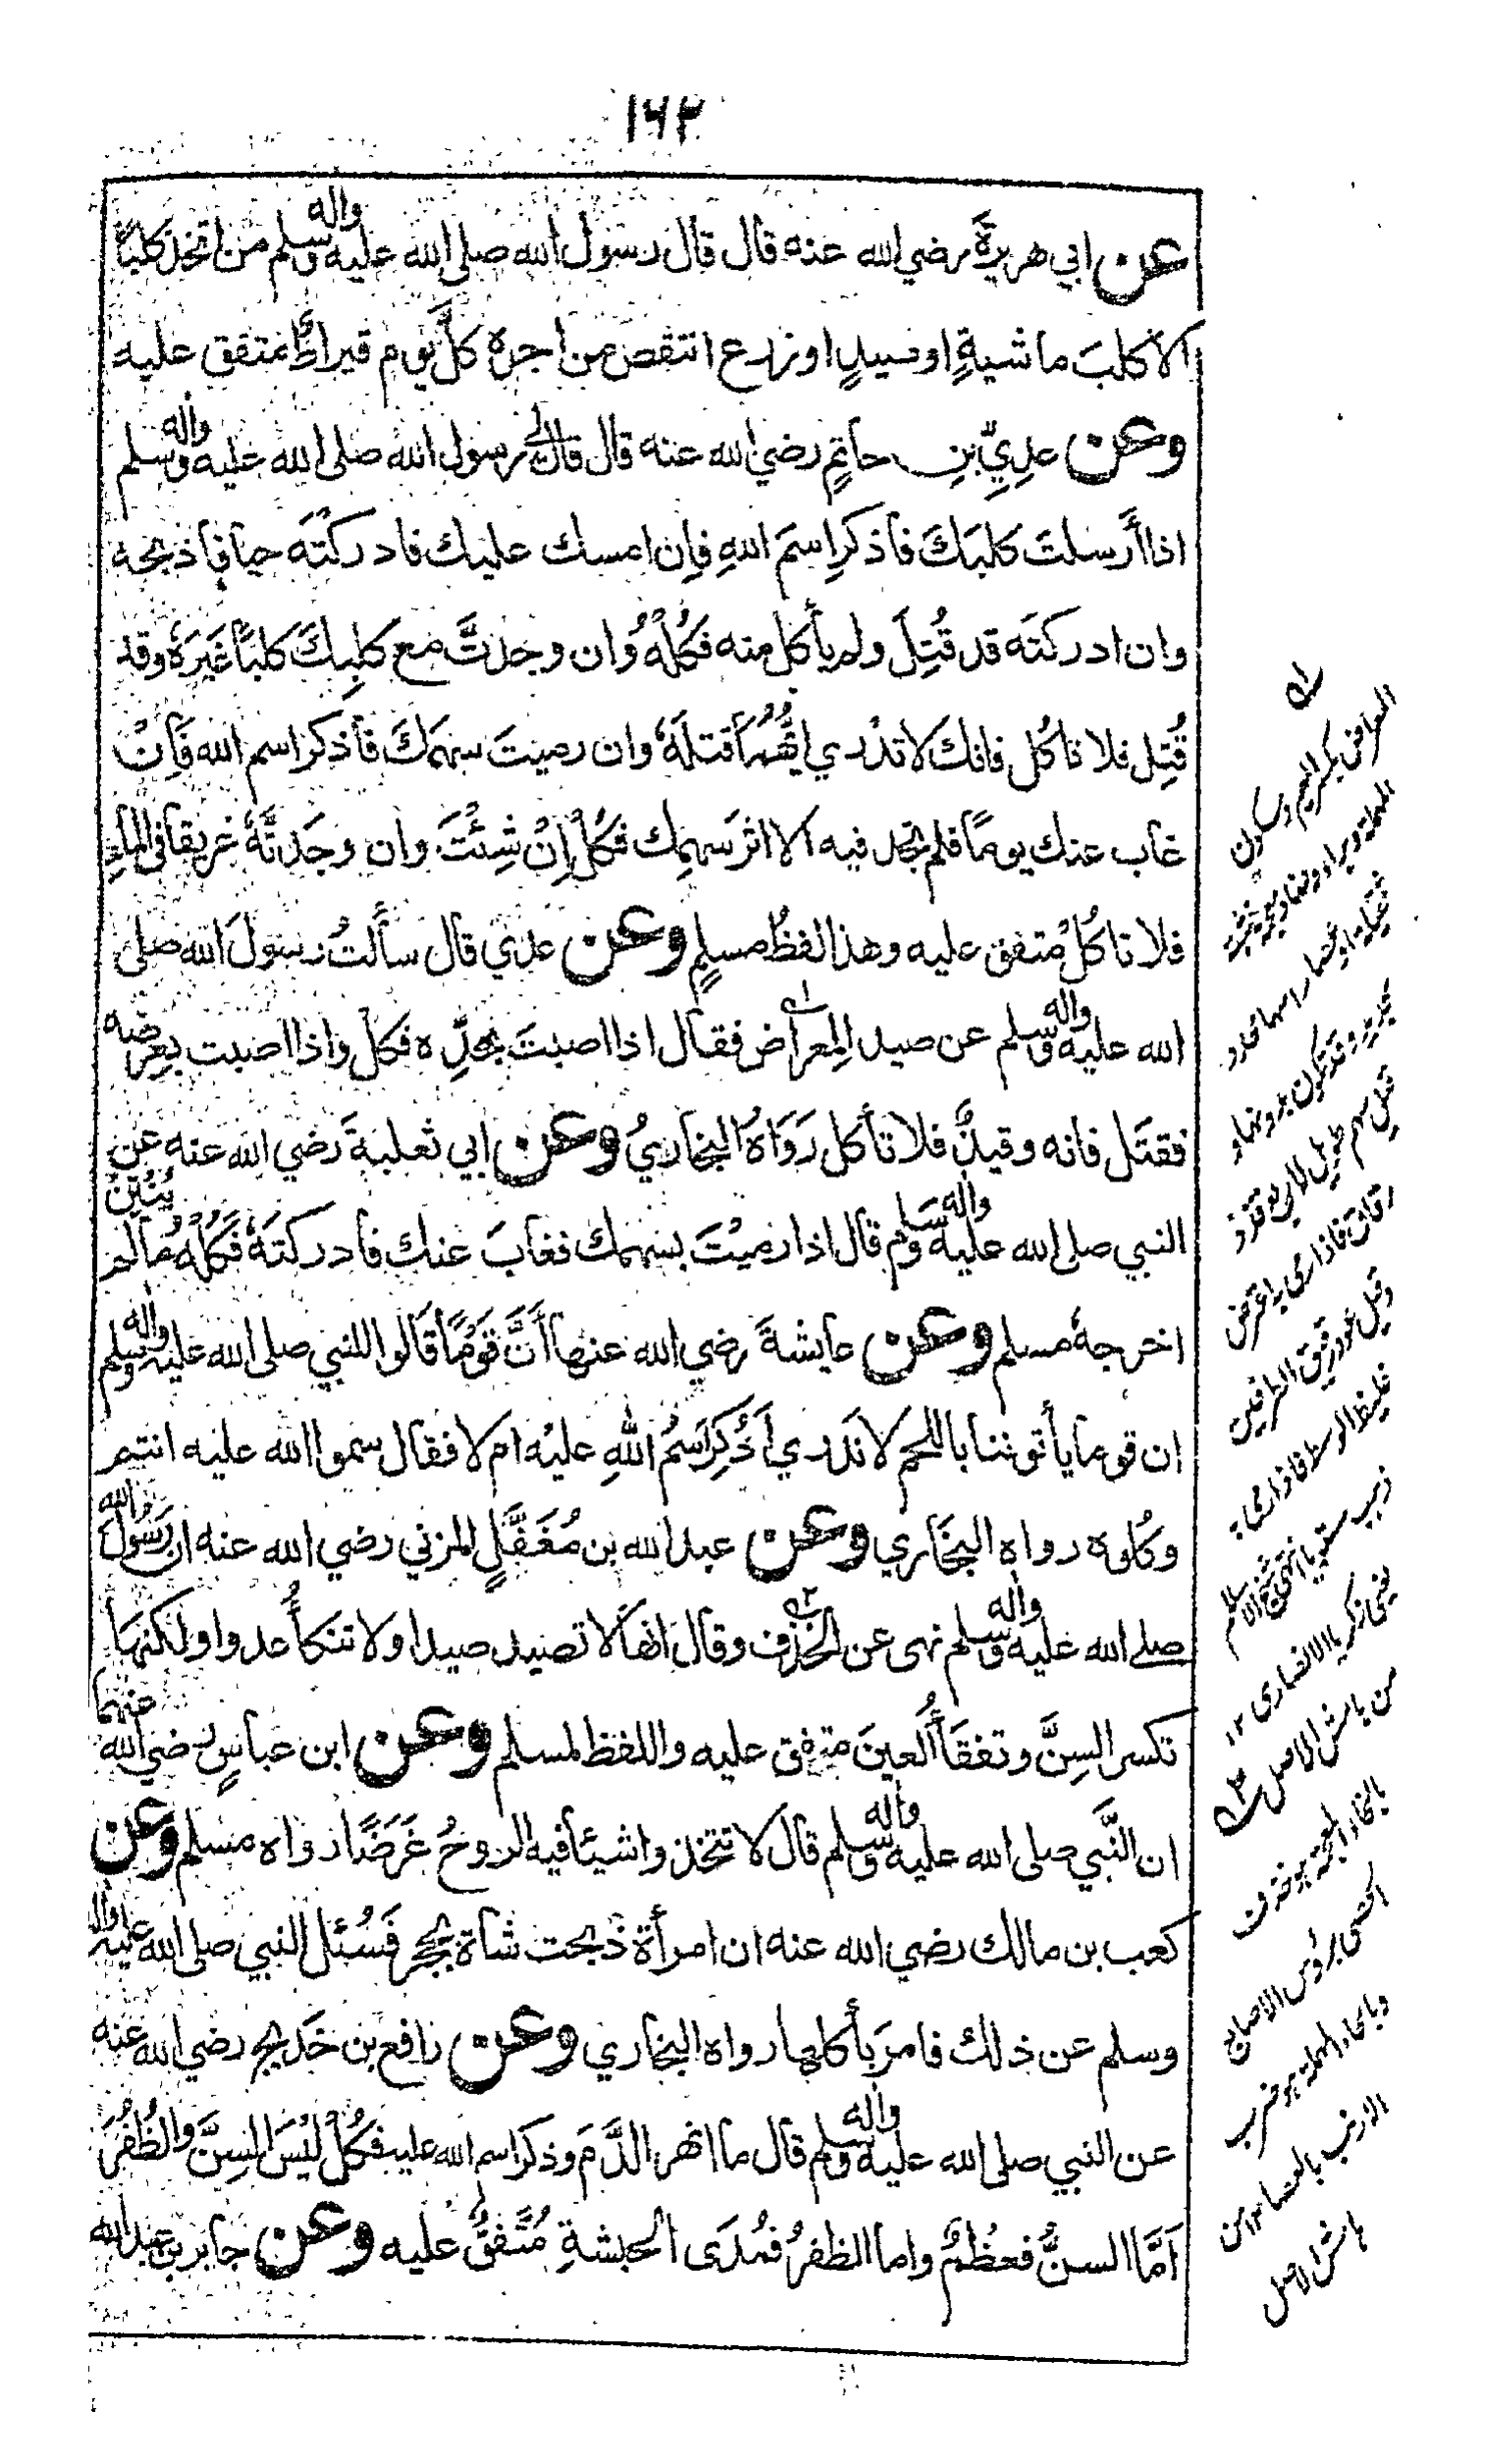 ۱۶۲
عن ابي هريرة رضي الله عنه قال قال رسول الله صلى الله عليه واله وسلم من اتخذ كلبًا
الا كلبَ ماشيةٍ او صيدٍ او زرع انتقص من اجره كلَّ يوم قيراطٌ متفق عليه
وعن عدِيِّ بنِ حاتمٍ رضي الله عنه قال قال لي رسول الله صلى الله عليه واله وسلم
اذا أرسلتَ كلبَكَ فأذكرِ اسمَ اللهِ فإن امسك عليك فادركتَه حيا فأذبحه
وان ادركتَه قد قُتِلَ ولم يأكل منه فكُلْهُ وان وجدتَّ مع كلبِكَ كلبًا غيرَهُ وقد
قُتِل فلا تاكُل فانك لا تدْري ايُّهُمَا قتلَهُ وان رميتَ سهمكَ فأذكر اسم الله فإنْ
غاب عنك يومًا فلم تجد فيه الا اثرَ سهمِك فكُلْ إنْ شِئْتَ وان وجَدتَّهُ غريقا في الماءِ
فلا تاكُلْ متفق عليه وهذا لفظُ مسلمٍ وعن عدي قال سألتُ رسولَ الله صلى
الله عليه واله وسلم عن صيد المِعراض فقال اذا اصبتَ بحدِّه فكل واذا اصبت بعرضه
فقتَل فانه وقيذٌ فلا تأكل رَوَاهُ البخاريُ وعن ابي ثعلبةَ رضي الله عنه عن
النبي صلى الله عليه واله وسلم قال اذا رميْتَ بسهمك فغابَ عنك فأدركتَهُ فَكُلْهُ مالم يُنْتِنْ
اخرجهُ مسلم وعن عايشةَ رضي الله عنها أنَّ قومًا قالوا للنبي صلى الله عليه واله وسلم
ان قوما يأتوننا باللحم لا نَدري أذُكِرَ اسمُ اللهِ عليْه ام لا فقال سموا الله عليه انتم
وكُلوه رواه البخاري وعن عبد الله بن مُغَفَّلٍ المزني رضي الله عنه ان رسول الله
صلى الله عليه واله وسلم نهى عن الخذف وقال انها لا تصيد صيدا ولا تنكأُ عدوا ولكنها
تكسر السِنَّ وتفقأُ العينَ متفق عليه واللفظ لمسلم وعن ابن عباسٍ رضي الله عنهما
ان النَّبي صلى الله عليه واله وسلم قال لا تتخذوا شيئا فيه الروحُ غَرَضًا رواه مسلم وعن
كعب بن مالك رضي الله عنه ان امرأة ذبحت شاة بحجر فَسُئل النبي صلى الله عليه واله
وسلم عن ذلك فامرَ بأكلها رواه البخاري وعن رافع بن خَديج رضي الله عنه
عن النبي صلى الله عليه واله وسلم قال ما انهر الدَّمَ وذكر اسم الله عليه فكُلْ ليْسَ السِنَّ والظُفُرَ
اَمَّا السنُّ فعظْمٌ واما الظفرُ فمُدَى الحبشةِ مُتَّفقٌ عليه وعن جابر بن عبد الله
المعراض بكسر الميم وسكون
المهملة وبراء وضاد معجمة خشبة
ثقيلة او عصا راسها محدد
بحديد وقد تكون بدونها و
قيل سهم طويل
رقاق فاذا رمى به اعترض
وقيل عود رقيق الطرفين
غليظ الوسط فاذا رمى به
ذهب مستويا انتهى شيخ الاسلام
يعني زكريا الانصاري ١٢
من هامش الاصل
بالخاء المعجمة هو خذف
الحصى برؤس الاصابع
وبالحاء المهملة هو ضرب
الارنب بالعصا من
هامش الاصل